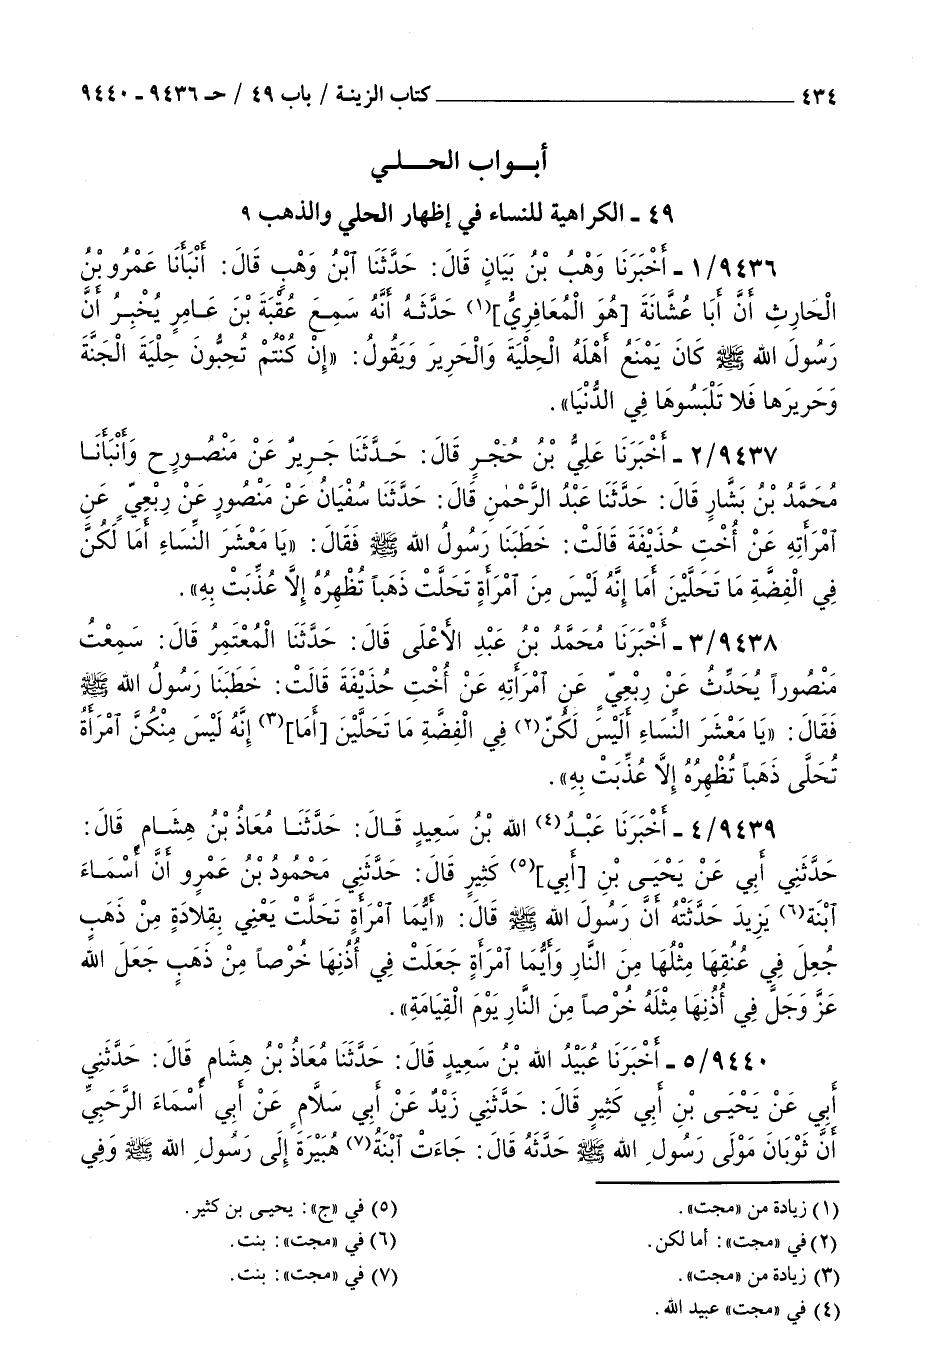 ٤٣٤ ــــــــــــــــــــــــــــــــ كتاب الزينة / باب ٤٩ / حـ ٩٤٣٦ ـ ٩٤٤٠
أبــواب الحـــلــي
٤٩ ـ الكراهية للنساء في إظهار الحلي والذهب ٩
١/٩٤٣٦ ـ أَخْبَرَنَا وَهْبُ بْنُ بَيَانٍ قَالَ: حَدَّثَنَا ٱبْنُ وَهْبٍ قَالَ: أَنْبَأَنَا عَمْرُو بْنُ
الْحَارِثِ أَنَّ أَبَا عُشَّانَةَ [هُوَ الْمُعَافِرِيُّ]⁽١⁾ حَدَّثَهُ أَنَّهُ سَمِعَ عُقْبَةَ بْنَ عَامِرٍ يُخْبِرُ أَنَّ
رَسُولَ الله ﷺ كَانَ يَمْنَعُ أَهْلَهُ الْحِلْيَةَ وَالْحَرِيرَ وَيَقُولُ: «إِنْ كُنْتُمْ تُحِبُّونَ حِلْيَةَ الْجَنَّةَ
وَحَرِيرَها فَلا تَلْبَسُوهَا فِي الدُّنْيَا».
٢/٩٤٣٧ ـ أَخْبَرَنَا عَلِيُّ بْنُ حُجْرٍ قَالَ: حَدَّثَنَا جَرِيرٌ عَنْ مَنْصُورٍ ح وَأَنْبَأَنَا
مُحَمَّدُ بْنُ بَشَّارٍ قَالَ: حَدَّثَنَا عَبْدُ الرَّحْمٰنِ قَالَ: حَدَّثَنَا سُفْيَانُ عَنْ مَنْصُورٍ عَنْ رِبْعِيٍّ عَنِ
ٱمْرَأَتِهِ عَنْ أُخْتِ حُذَيْفَةَ قَالَتْ: خَطَبَنَا رَسُولُ الله ﷺ فَقَالَ: «يَا مَعْشَرَ النِّسَاءِ أَمَا لَكُنَّ
فِي الْفِضَّةِ مَا تَحَلَّيْنَ أَمَا إِنَّهُ لَيْسَ مِنَ ٱمْرَأَةٍ تَحَلَّتْ ذَهَباً تُظْهِرُهُ إِلَّا عُذِّبَتْ بِهِ».
٣/٩٤٣٨ ـ أَخْبَرَنَا مُحَمَّدُ بْنُ عَبْدِ الأَعْلَى قَالَ: حَدَّثَنَا الْمُعْتَمِرُ قَالَ: سَمِعْتُ
مَنْصُوراً يُحَدِّثُ عَنْ رِبْعِيٍّ عَنِ ٱمْرَأَتِهِ عَنْ أُخْتِ حُذَيْفَةَ قَالَتْ: خَطَبَنَا رَسُولُ الله ﷺ
فَقَالَ: «يَا مَعْشَرَ النِّسَاءِ أَلَيْسَ لَكُنَّ⁽٢⁾ فِي الْفِضَّةِ مَا تَحَلَّيْنَ [أَمَا]⁽٣⁾ إِنَّهُ لَيْسَ مِنْكُنَّ ٱمْرَأَةٌ
تُحَلَّى ذَهَباً تُظْهِرُهُ إِلَّا عُذِّبَتْ بِهِ».
٤/٩٤٣٩ ـ أَخْبَرَنَا عَبْدُ⁽٤⁾ الله بْنُ سَعِيدٍ قَالَ: حَدَّثَنَا مُعَاذُ بْنُ هِشَامٍ قَالَ:
حَدَّثَنِي أَبِي عَنْ يَحْيَى بْنِ [أَبِي]⁽٥⁾ كَثِيرٍ قَالَ: حَدَّثَنِي مَحْمُودُ بْنُ عَمْرٍو أَنَّ أَسْمَاءَ
ٱبْنَةَ⁽٦⁾ يَزِيدَ حَدَّثَتْهُ أَنَّ رَسُولَ الله ﷺ قَالَ: «أَيُّمَا ٱمْرَأَةٍ تَحَلَّتْ يَعْنِي بِقِلادَةٍ مِنْ ذَهَبٍ
جُعِلَ فِي عُنُقِهَا مِثْلُهَا مِنَ النَّارِ وَأَيُّمَا ٱمْرَأَةٍ جَعَلَتْ فِي أُذُنِهَا خُرْصاً مِنْ ذَهَبٍ جَعَلَ الله
عَزَّ وَجَلَّ فِي أُذُنِهَا مِثْلَهُ خُرْصاً مِنَ النَّارِ يَوْمَ الْقِيَامَةِ».
٥/٩٤٤٠ ـ أَخْبَرَنَا عُبَيْدُ الله بْنُ سَعِيدٍ قَالَ: حَدَّثَنَا مُعَاذُ بْنُ هِشَامٍ قَالَ: حَدَّثَنِي
أَبِي عَنْ يَحْيَى بْنِ أَبِي كَثِيرٍ قَالَ: حَدَّثَنِي زَيْدٌ عَنْ أَبِي سَلَّامٍ عَنْ أَبِي أَسْمَاءَ الرَّحَبِيِّ
أَنَّ ثَوْبَانَ مَوْلَى رَسُولِ الله ﷺ حَدَّثَهُ قَالَ: جَاءَتْ ٱبْنَةُ⁽٧⁾ هُبَيْرَةَ إِلَى رَسُولِ الله ﷺ وَفِي
(١) زيادة من «مجت».
(٢) في «مجت»: أما لكن.
(٣) زيادة من «مجت».
(٤) في «مجت» عبيد الله.
(٥) في «ج»: يحيى بن كثير.
(٦) في «مجت»: بنت.
(٧) في «مجت»: بنت.